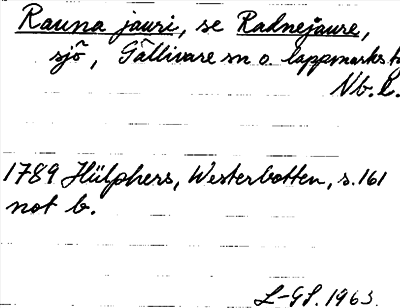 Rauna jauri, se Radnejaure,
sjö, Gällivare sn o. lappmarks t
Nb. l.
1789 Hülphers, Westerbotten, s. 161
not b.
L-GL. 1963